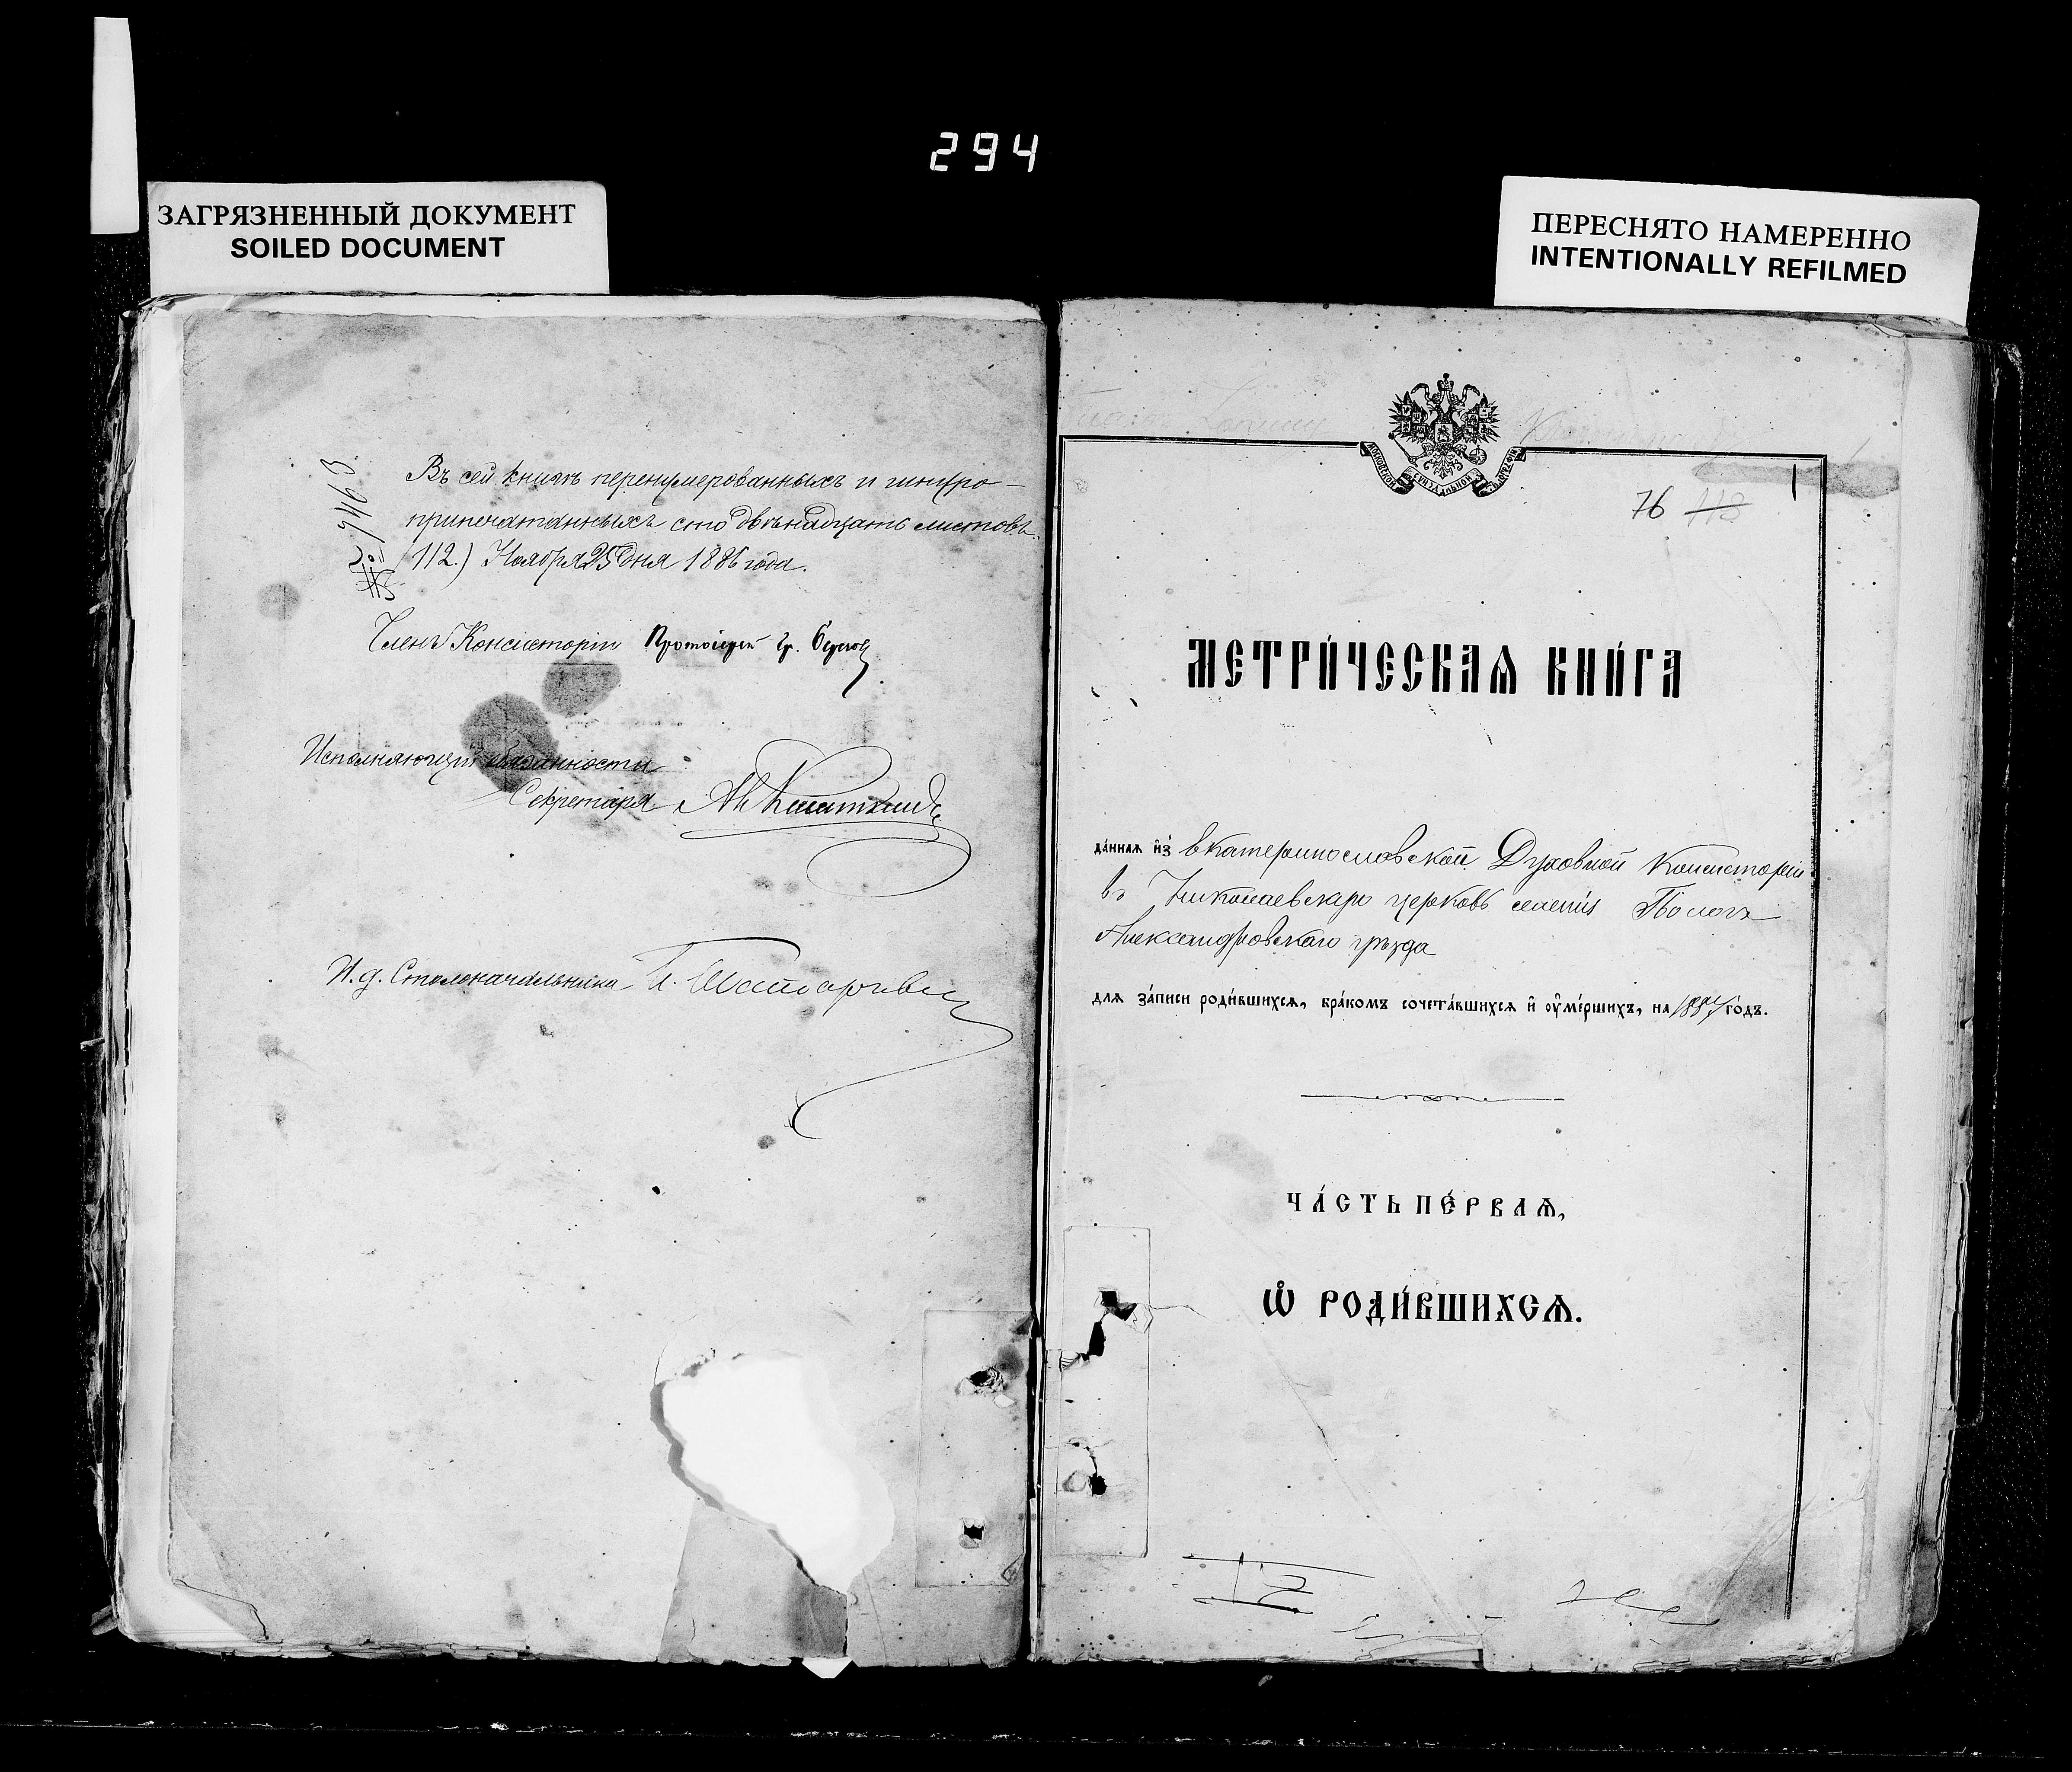 294
ЗАГРЯЗНЕННЫЙ ДОКУМЕНТ
SOILED DOCUMENT
ПЕРЕСНЯТО НАМЕРЕННО
INTENTIONALLY REFILMED
№ 9163
Въ сей книгѣ перенумерованныхъ и шнуро-
припечатанныхъ сто двѣнадцать листовъ
(112.) Ноября 25 дня 1886 года.
Членъ Консисторіи Протоіерей Гр.
Исполняющій обязанности
Секретаря
И. д. Столоначальника
76 113
1
МЕТРИ́ЧЕСКАѦ КНИ́ГА
да́ннаѧ и҆з̾ Екатеринославской Духовной Консисторіи
въ Николаевскую церковь селенія Пологъ
Александровскаго уѣзда
длѧ за́писи роди́вшихсѧ, бра́комъ сочета́вшихсѧ и҆ ᲂу҆ме́ршихъ, на 1887 го́дъ.
ЧА́СТЬ ПЕ́РВАѦ,
Ѡ҆ РОДИ́ВШИХСѦ.